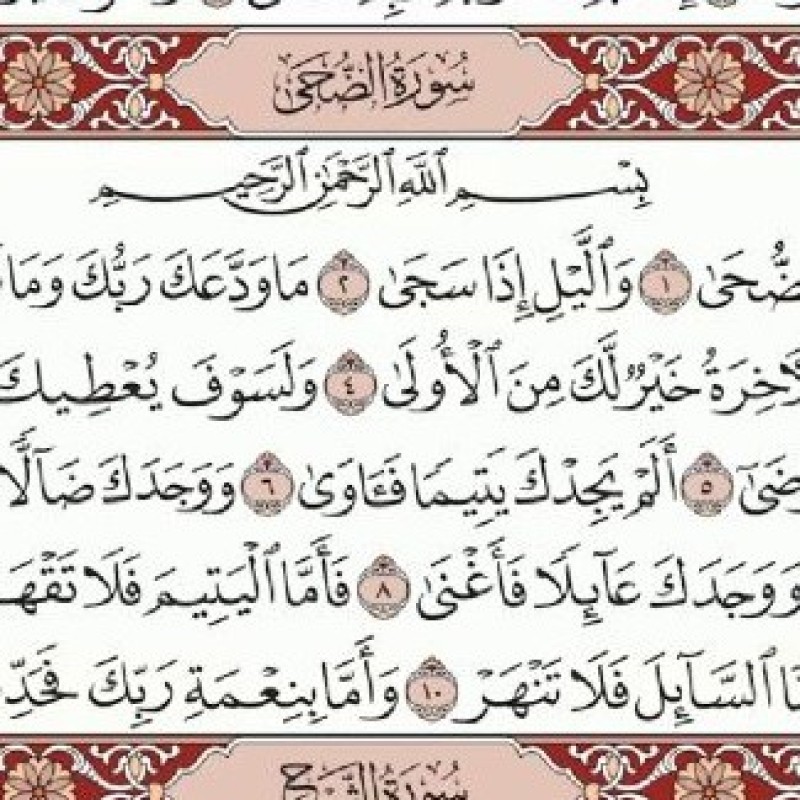 سُورَةُ الضُّحَى
بِسْمِ ٱللَّهِ ٱلرَّحْمَٰنِ ٱلرَّحِيمِ
ضُّحَىٰ ١ وَٱلَّيْلِ إِذَا سَجَىٰ ٢ مَا وَدَّعَكَ رَبُّكَ وَمَا
لَّكَ مِنَ ٱلْأُولَىٰ ٤ وَلَسَوْفَ يُعْطِيكَ
ضَىٰٓ ٥ أَلَمْ يَجِدْكَ يَتِيمًا فَـَٔاوَىٰ ٦ وَوَجَدَكَ ضَآلًّا
وَوَجَدَكَ عَآئِلًا فَأَغْنَىٰ ٨ فَأَمَّا ٱلْيَتِيمَ فَلَا تَقْهَ
ٱلسَّآئِلَ فَلَا تَنْهَرْ ١٠ وَأَمَّا بِنِعْمَةِ رَبِّكَ فَحَدِّ
سُورَةُ الشَّرْحِ